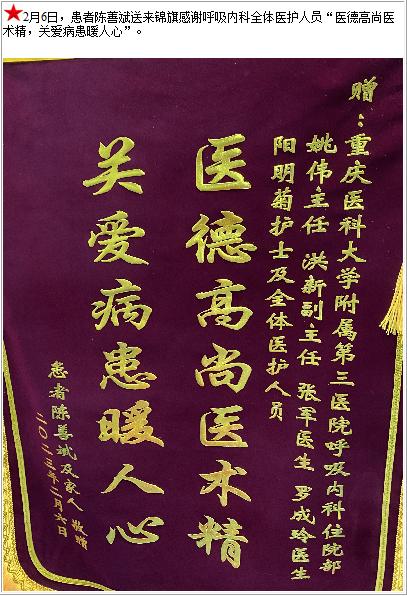 2月6日，患者陈善斌送来锦旗感谢呼吸内科全体医护人员“医德高尚医
术精，关爱病患暖人心”。
赠：重庆医科大学附属第三医院呼吸内科住院部
姚伟主任 洪新副主任 张军医生 罗成玲医生
阳明菊护士及全体医护人员
医德高尚医术精
关爱病患暖人心
患者陈善斌及家人 敬赠
二〇二三年二月六日